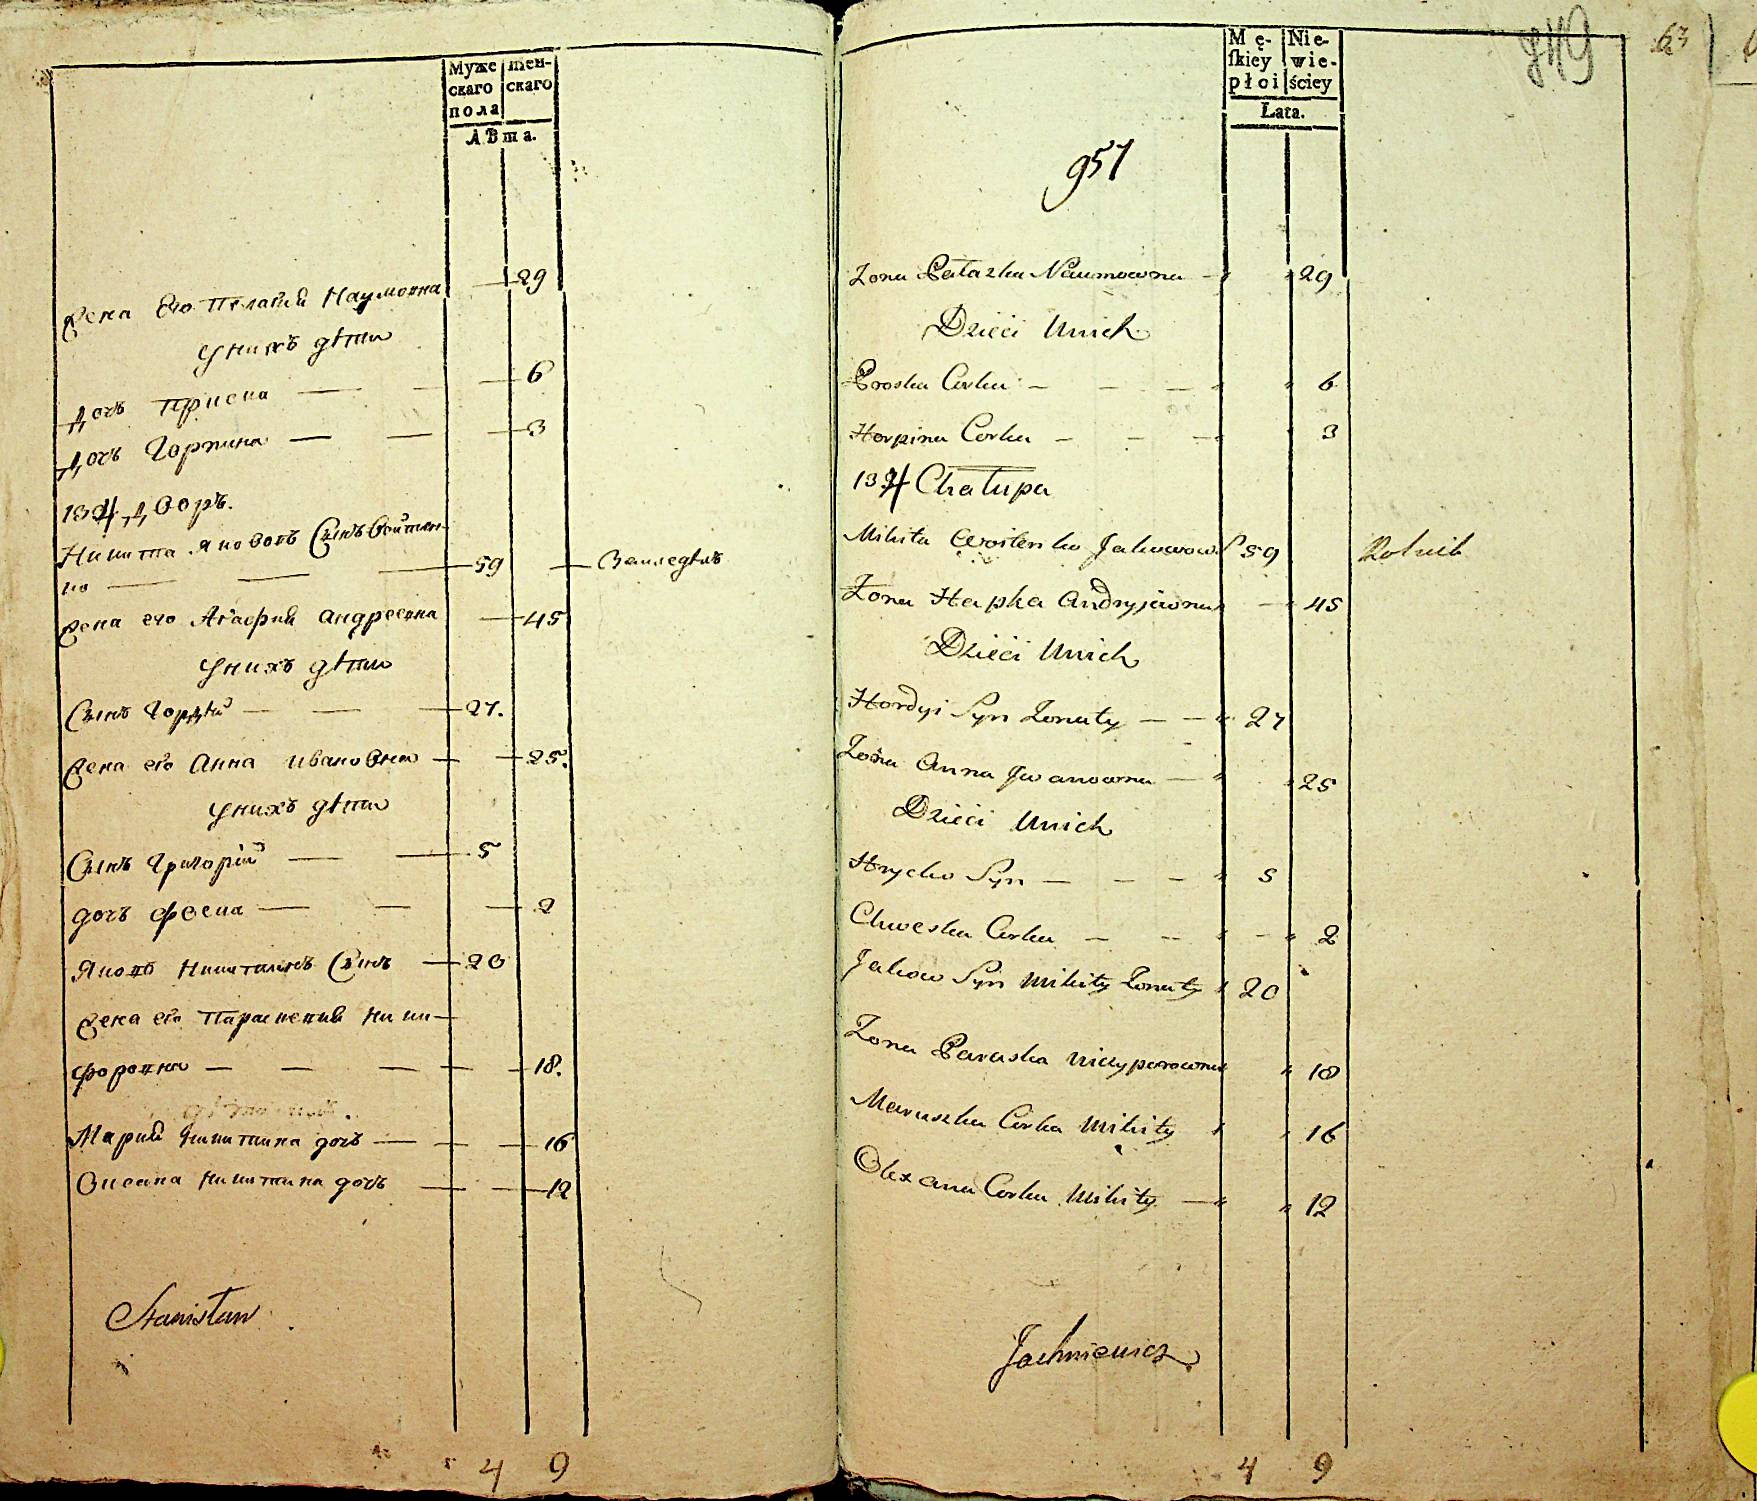 Муже
скаго
пола
жен-
скаго
лѣта.
жена Его Пелагия Наумовна 29
у нихъ дѣти
дочь Приска 6
дочь Горпина 3
134 дворъ.
Никита Якововъ Сынъ Войтен-
ко 59 Земледѣлъ
жена его Агафия Андреевна 45
у нихъ дѣти
Сынъ Гордѣй 27.
жена его Анна Ивановна 25.
у нихъ дѣти
Сынъ Григорій 5
дочь Феска 2
Яковъ Никитинъ Сынъ 20
жена его Параскевия Ники-
форовна 18.
Мария Никитина дочь 16
Оксана Никитина дочь 12
Stanisław
4 9
Mę-
ſkiey
płci
Nie-
wie-
ściey
Lata.
63
951
Żona Pałazka Naumowna 29
Dzieci Unich
Proska Corka 6
Horpina Corka 3
134 Chałupa
Mikita Woitenko Jakowow S 59 Rolnik
Żona Hapka Andryjowna 45
Dzieci Unich
Hordyi Syn Żonaty 27
Żona Anna Jwanowna 25
Dzieci Unich
Hrycko Syn 5
Chweska Corka 2
Jakow Syn Mikity Żonaty 20
Żona Paraska Niczyporowna 18
Maruszka Corka Mikity 16
Olexana Corka Mikity 12
Jachniewicz
4 9